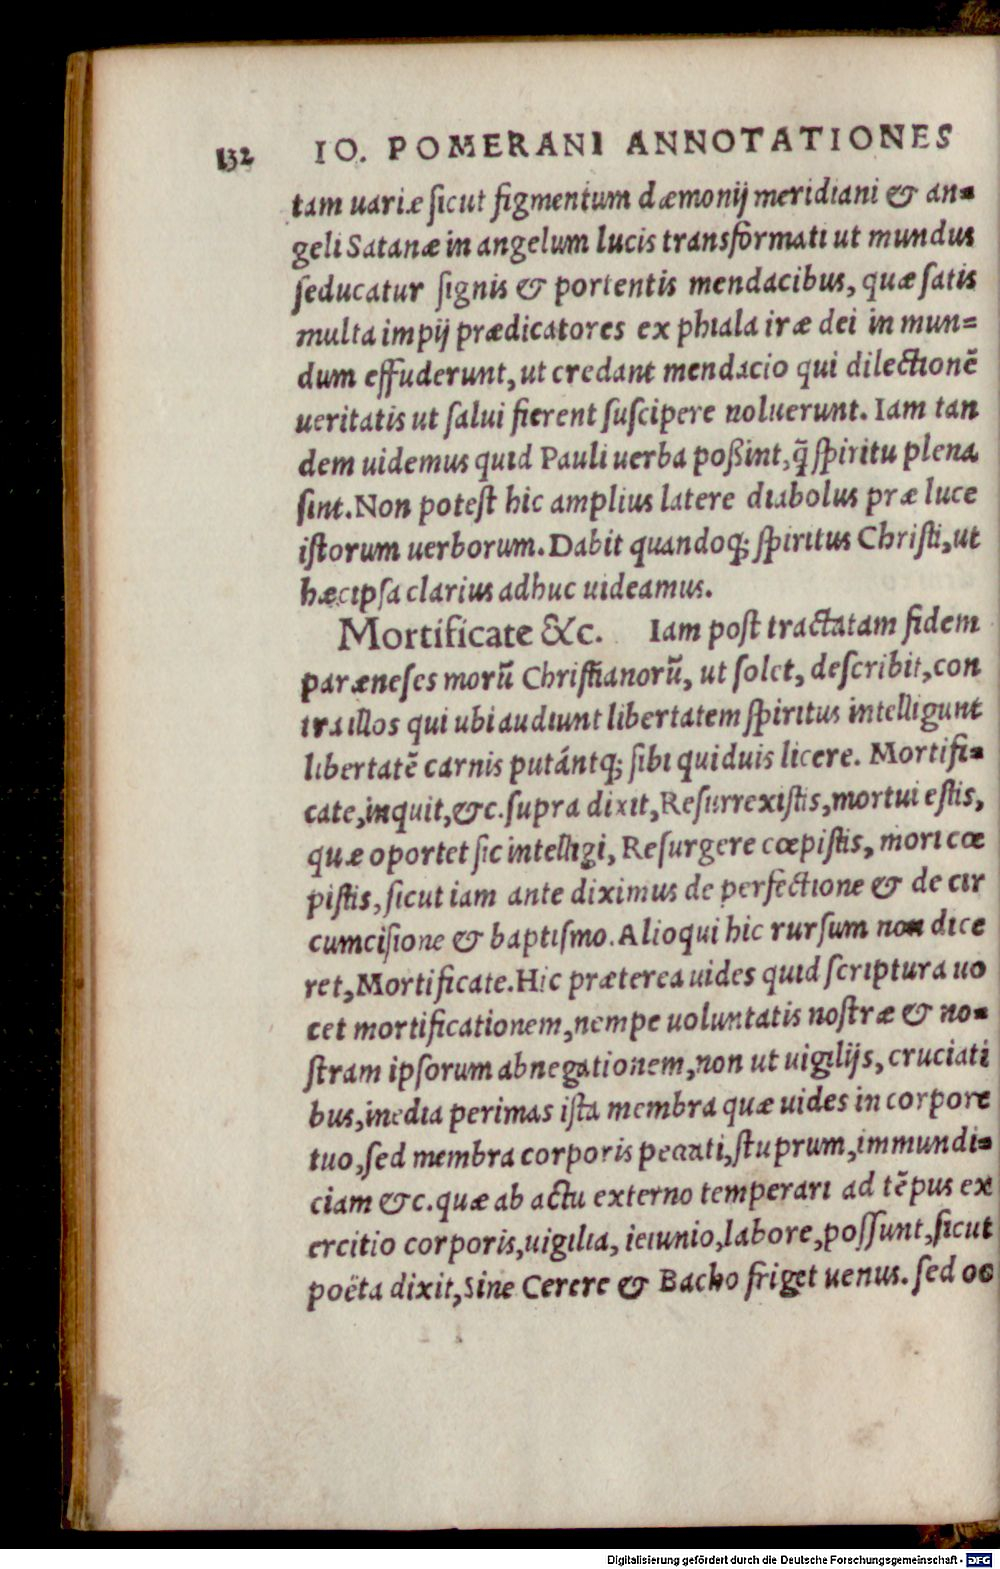 132 IO. POMERANI ANNOTATIONES
tam uariæ ſicut figmentum dæmonij meridiani & an-
geli Satanæ in angelum lucis transformati ut mundus
ſeducatur ſignis & portentis mendacibus, quæ ſatis
multa impij prædicatores ex phiala iræ dei in mun=
dum effuderunt, ut credant mendacio qui dilectionē
ueritatis ut ſalui fierent ſuſcipere noluerunt. Iam tan
dem uidemus quid Pauli uerba poßint, q̃ ſpiritu plena
ſint. Non poteſt hic amplius latere diabolus præ luce
iſtorum uerborum. Dabit quandoq; ſpiritus Chriſti, ut
hæc ipſa clarius adhuc uideamus.
Mortificate &c. Iam poſt tractatam fidem
paræneſes morũ Chriſtianorũ, ut ſolet, deſcribit, con
tra illos qui ubi audiunt libertatem ſpiritus intelligunt
libertatē carnis putántq; ſibi quiduis licere. Mortifi-
cate, inquit, &c. ſupra dixit, Reſurrexiſtis, mortui eſtis,
quæ oportet ſic intelligi, Reſurgere cœpiſtis, mori cœ
piſtis, ſicut iam ante diximus de perfectione & de cir
cumciſione & baptiſmo. Alioqui hic rurſum non dice
ret, Mortificate. Hic præterea uides quid ſcriptura uo
cet mortificationem, nempe uoluntatis noſtræ & no-
ſtram ipſorum abnegationem, non ut uigilijs, cruciati
bus, inedia perimas iſta membra quæ uides in corpore
tuo, ſed membra corporis peccati, ſtuprum, immundi-
ciam &c. quæ ab actu externo temperari ad tēpus ex
ercitio corporis, uigilia, ieiunio, labore, poſſunt, ſicut
poëta dixit, Sine Cerere & Bacho friget uenus. ſed oc
Digitalisierung gefördert durch die Deutsche Forschungsgemeinschaft - DFG